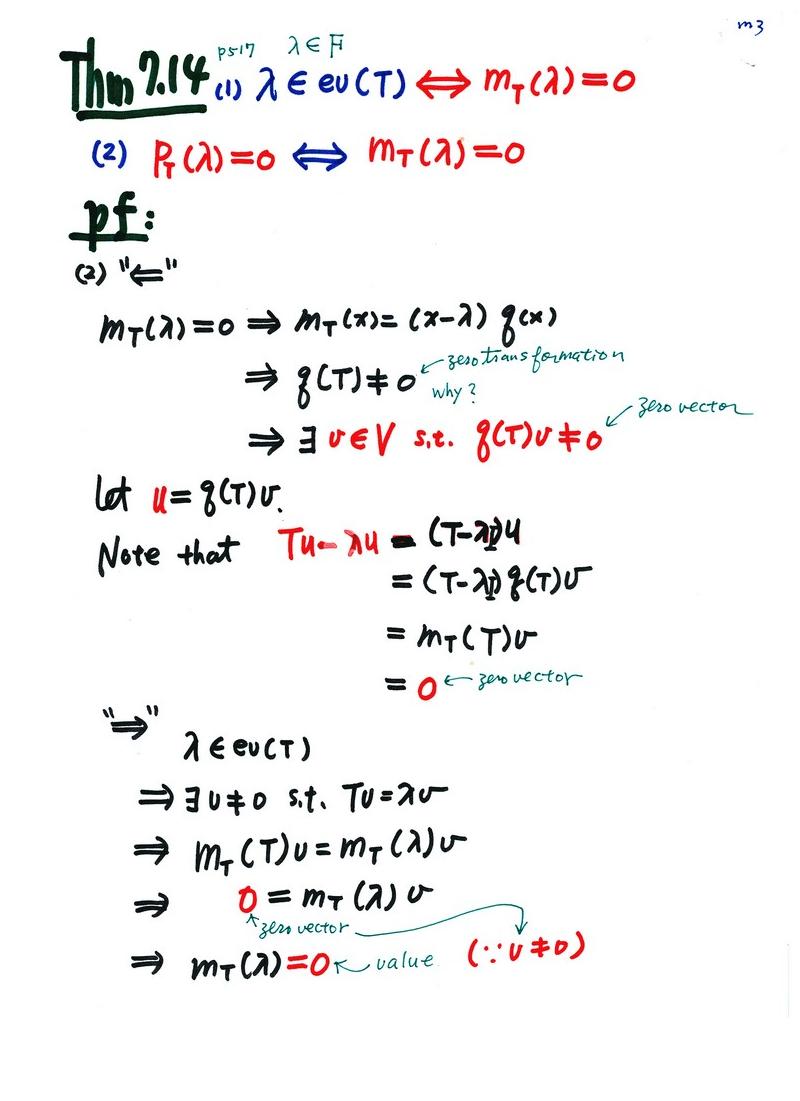 m3
p517 λ ∈ F
Thm 7.14 (1) λ ∈ ev(T) ⟺ m_T(λ) = 0
(2) P_T(λ) = 0 ⟺ m_T(λ) = 0
pf:
(2) "⇐"
m_T(λ) = 0 ⇒ m_T(x) = (x-λ) q(x)
⇒ q(T) ≠ 0 ← zero transformation
why?
⇒ ∃ v ∈ V s.t. q(T)v ≠ 0 ← zero vector
Let u = q(T)v.
Note that Tu - λu = (T-λI)u
= (T-λI) q(T)v
= m_T(T)v
= 0 ← zero vector
"⇒"
λ ∈ ev(T)
⇒ ∃ v ≠ 0 s.t. Tv = λv
⇒ m_T(T)v = m_T(λ)v
⇒ 0 = m_T(λ)v
zero vector
⇒ m_T(λ) = 0 ← value (∵ v ≠ 0)